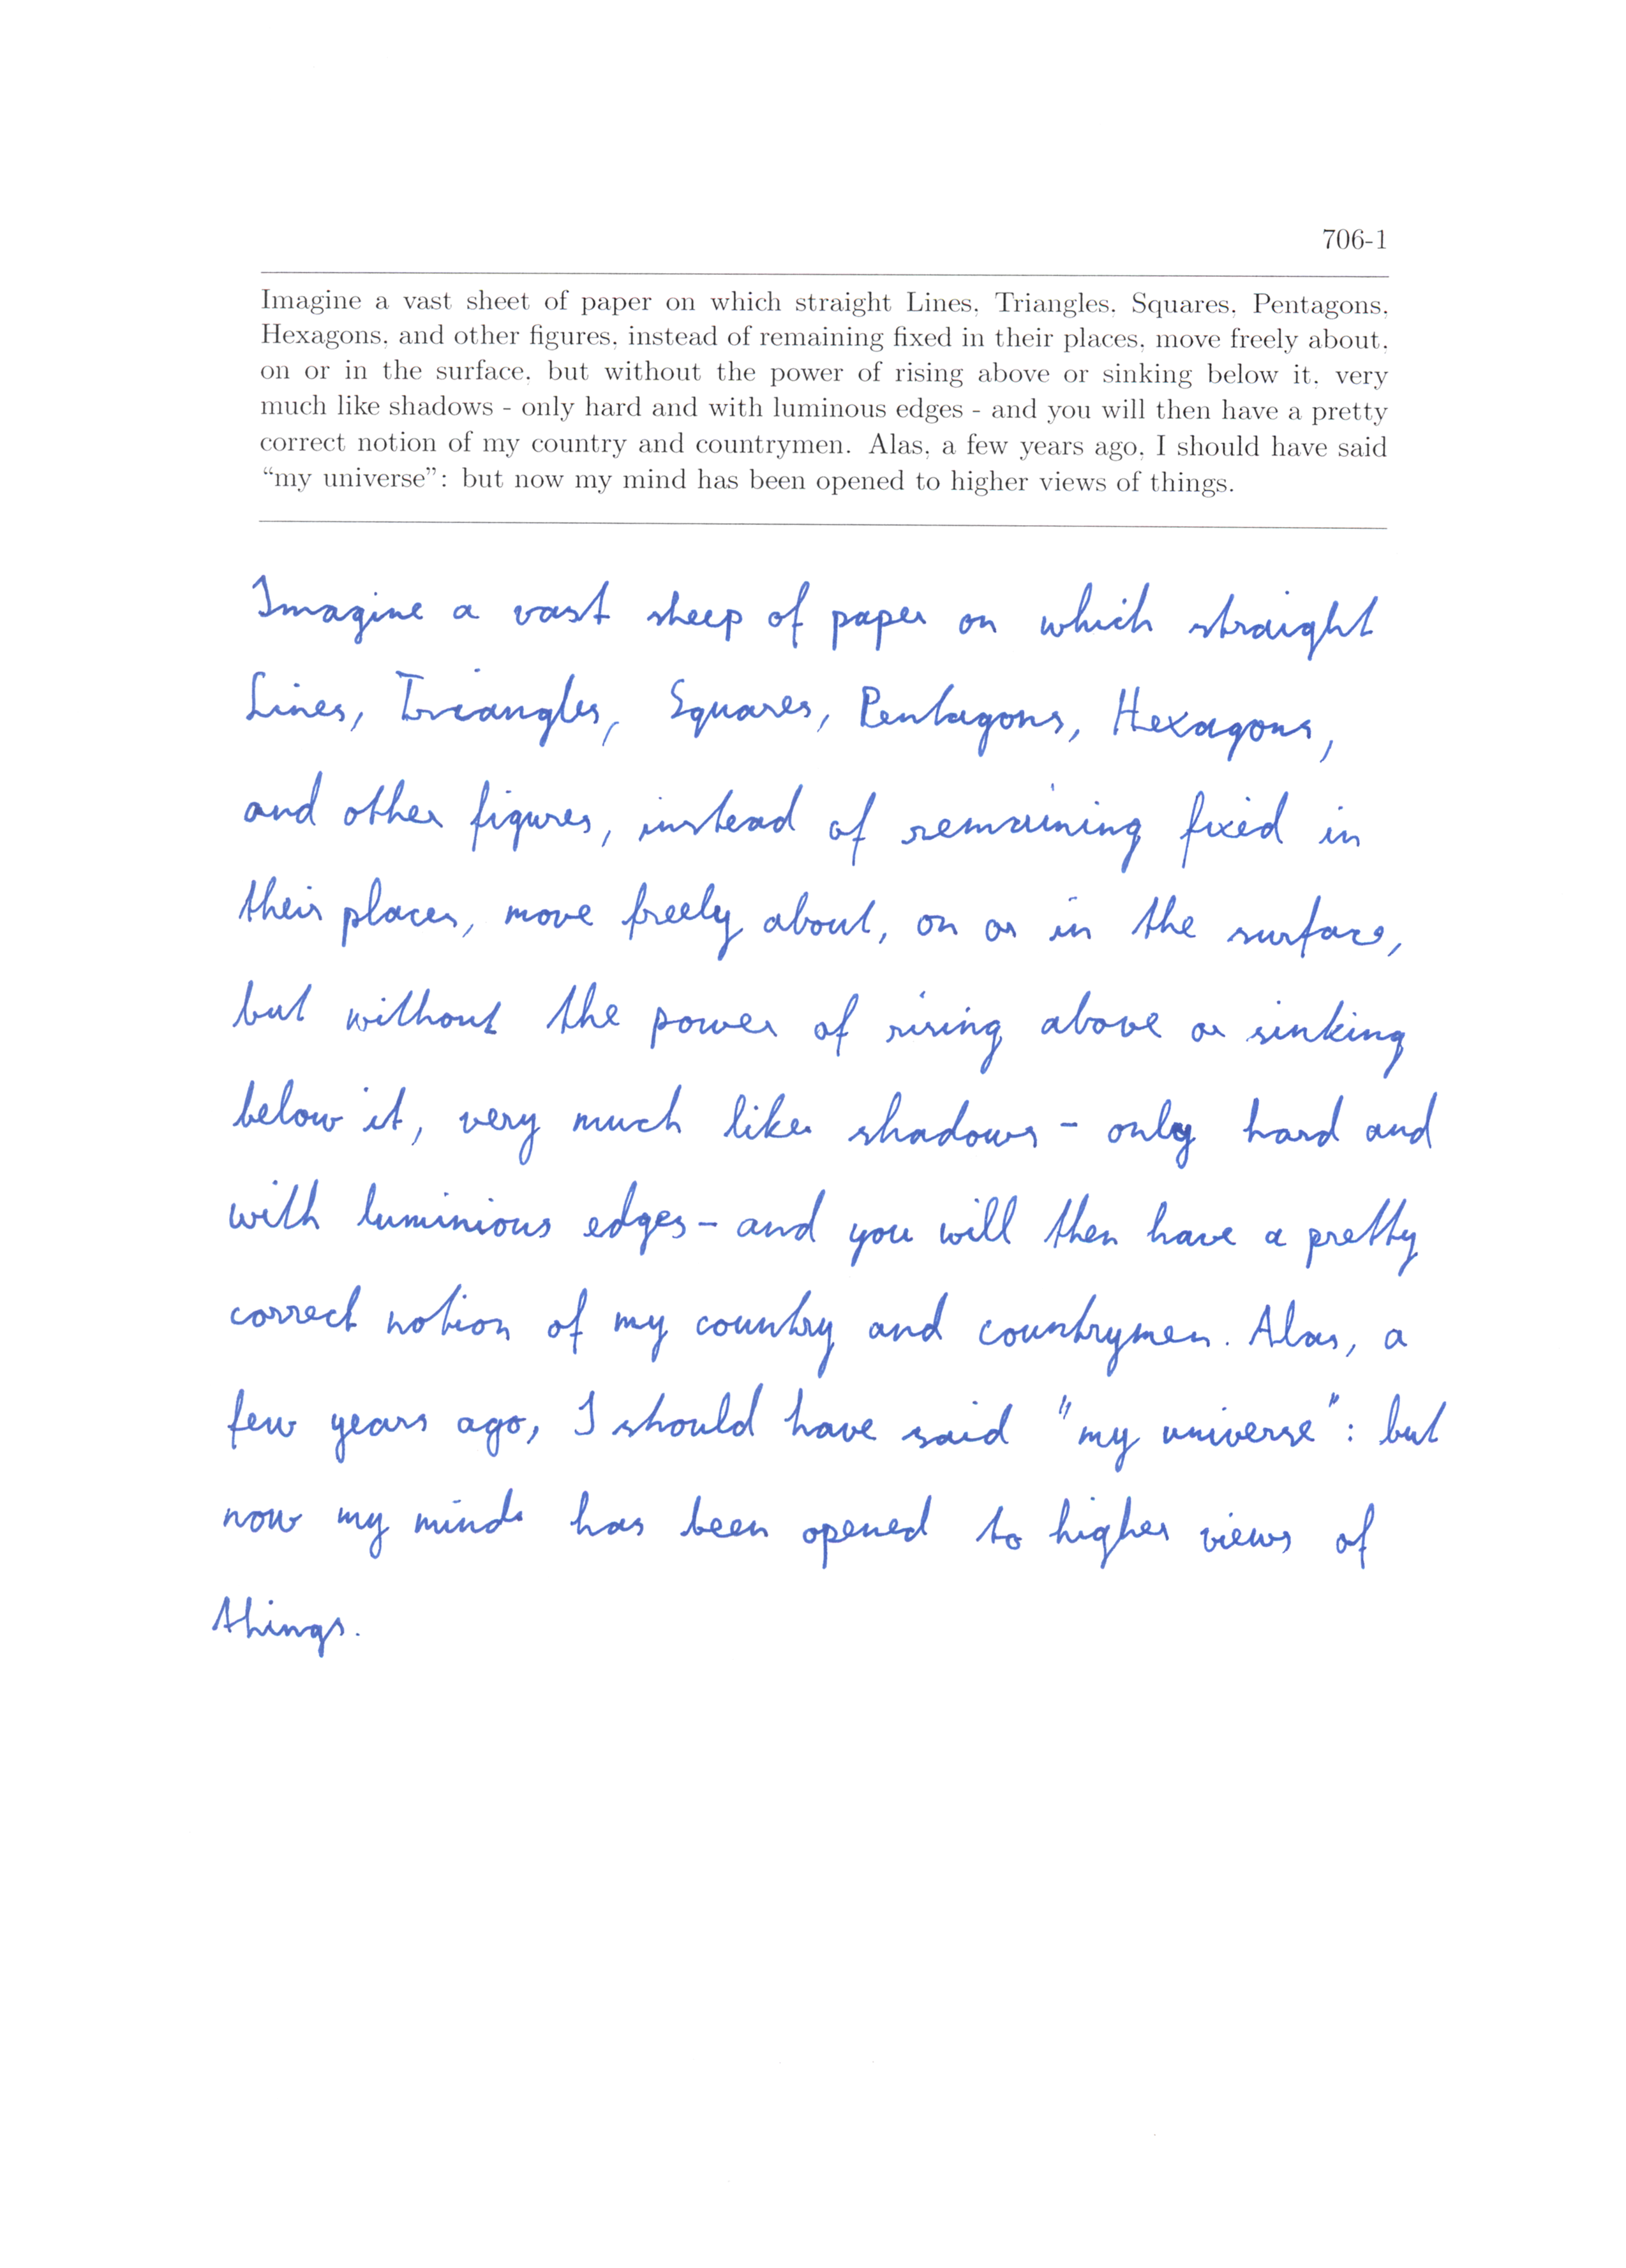 706-1
Imagine a vast sheet of paper on which straight Lines, Triangles, Squares, Pentagons,
Hexagons, and other figures, instead of remaining fixed in their places, move freely about,
on or in the surface, but without the power of rising above or sinking below it, very
much like shadows - only hard and with luminous edges - and you will then have a pretty
correct notion of my country and countrymen. Alas, a few years ago, I should have said
“my universe”: but now my mind has been opened to higher views of things.
Imagine a vast sheep of paper on which straight
Lines, Triangles, Squares, Pentagons, Hexagons,
and other figures, instead of remaining fixed in
their places, move freely about, on or in the surface,
but without the power of rising above or sinking
below it, very much like shadows - only hard and
with luminious edges - and you will then have a pretty
correct notion of my country and countrymen. Alas, a
few years ago, I should have said "my universe": but
now my mind has been opened to higher views of
things.